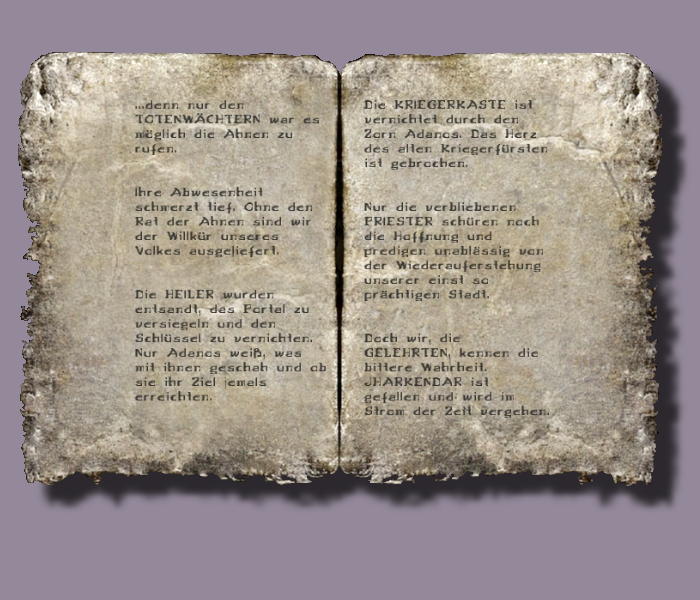 ...denn nur den
TOTENWÄCHTERN war es
möglich die Ahnen zu
rufen.
Ihre Abwesenheit
schmerzt tief. Ohne den
Rat der Ahnen sind wir
der Willkür unseres
Volkes ausgeliefert.
Die HEILER wurden
entsandt, das Portal zu
versiegeln und den
Schlüssel zu vernichten.
Nur Adanos weiß, was
mit ihnen geschah und ob
sie ihr Ziel jemals
erreichten.
Die KRIEGERKASTE ist
vernichtet durch den
Zorn Adanos. Das Herz
des alten Kriegerfürsten
ist gebrochen.
Nur die verbliebenen
PRIESTER schüren noch
die Hoffnung und
predigen unablässig von
der Wiederauferstehung
unserer einst so
prächtigen Stadt.
Doch wir, die
GELEHRTEN, kennen die
bittere Wahrheit.
JHARKENDAR ist
gefallen und wird im
Strom der Zeit vergehen.